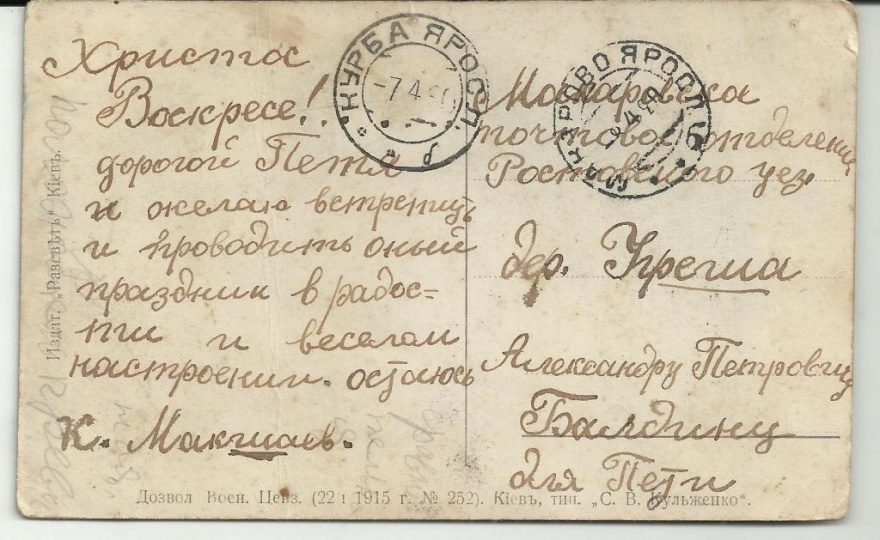 Христос
Воскресе!
дорогой Петя
и желаю встретить
и проводить оный
праздник в радос=
ти и веселом
настроении. остаюсь
К. Макшаев.
КУРБА ЯРОСЛ.
-7.4
МАКАРОВО ЯРОСЛ.
Макаровска
почтовое отделение
Ростовского уез.
дер. Уреша
Александру Петровичу
Балдину
для Пети
Издат. „Разсвѣтъ" Кіевъ.
Дозвол Воен. Ценз. (22 1 1915 г. № 252). Кіевъ, тип. „С. В. Кульженко".